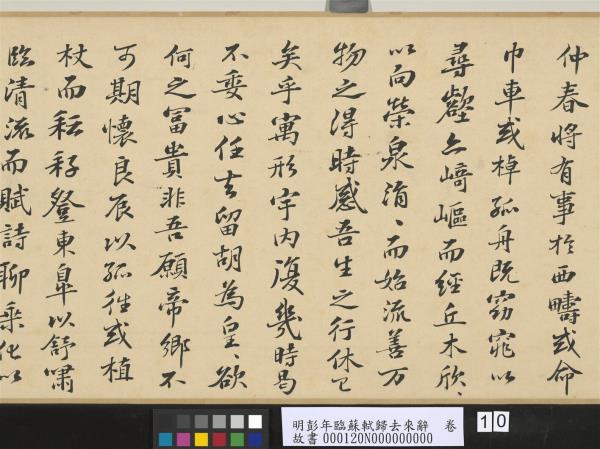 仲春將有事於西疇或命
巾車或棹孤舟既窈窕以
尋壑亦崎嶇而經丘木欣、
以向榮泉涓、而始流善万
物之得時感吾生之行休已
矣乎寓形宇内復幾時曷
不委心任去留胡為皇、欲
何之富貴非吾願帝鄉不
可期懷良辰以孤往或植
杖而耘耔登東皋以舒嘯
臨清流而賦詩聊乘化以
明彭年臨蘇軾歸去來辭 卷
故書 000120N000000000
10